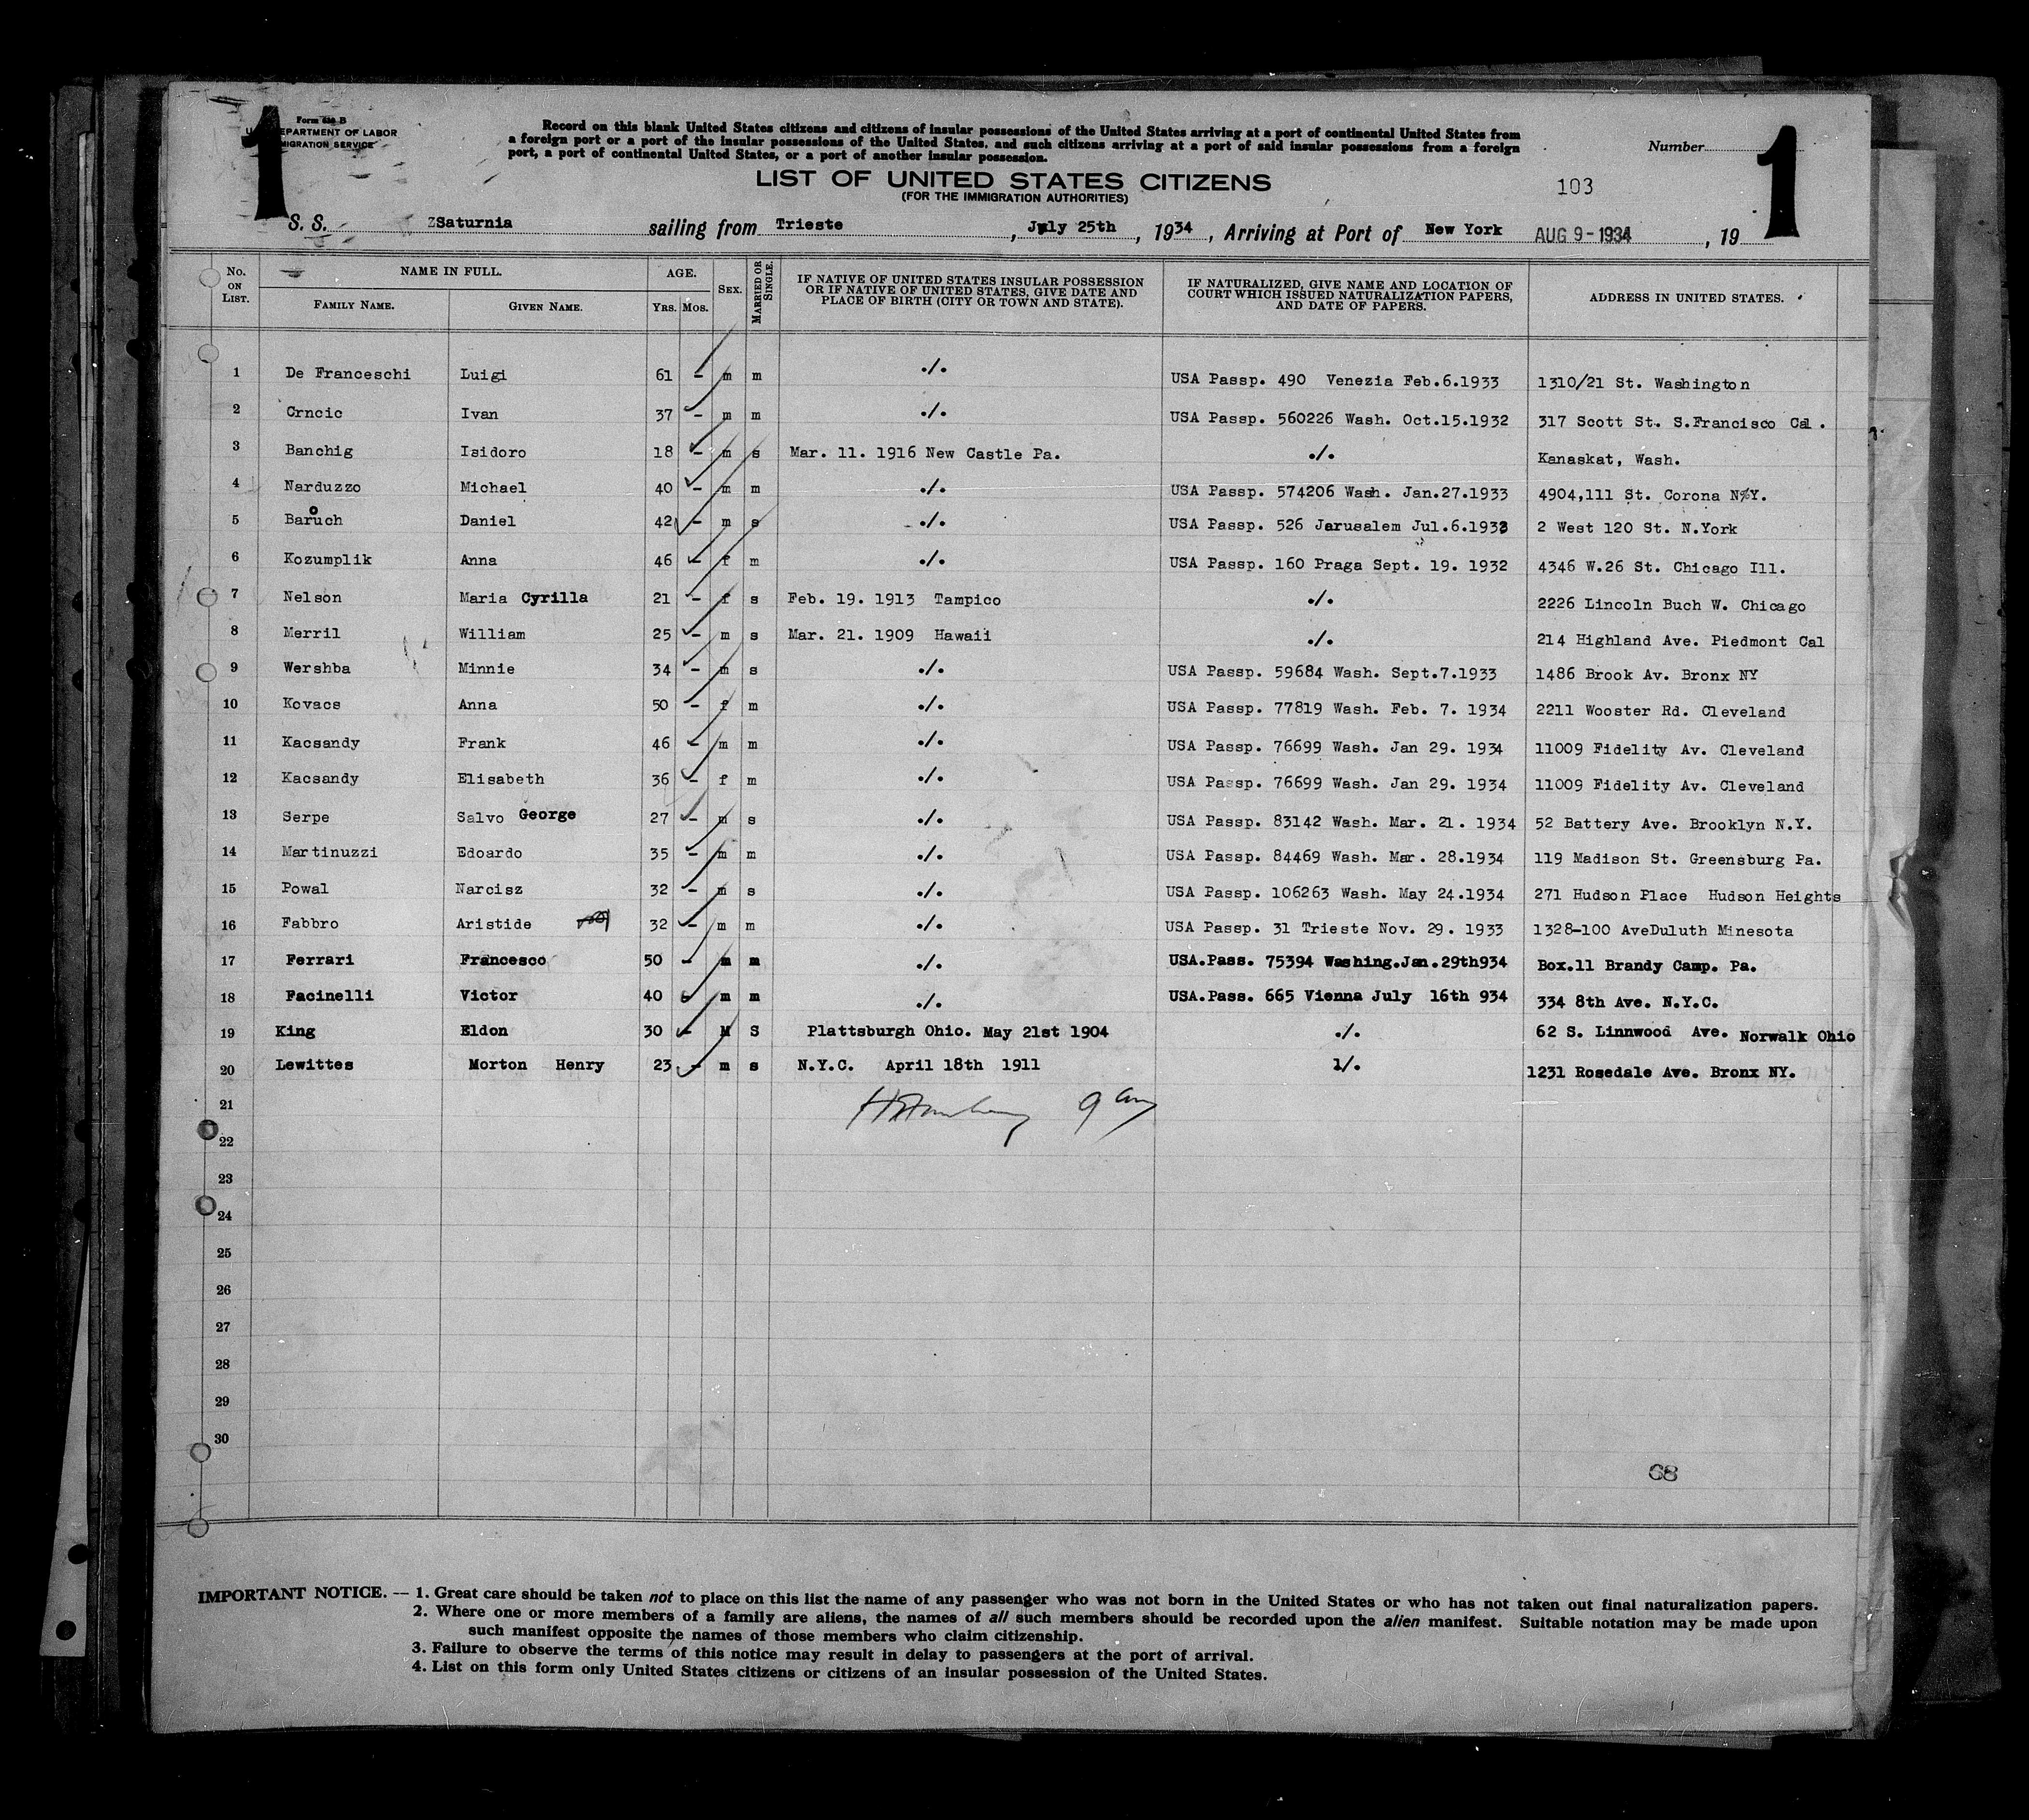 1
Form 630 B
U. S. DEPARTMENT OF LABOR
IMMIGRATION SERVICE
Record on this blank United States citizens and citizens of insular possessions of the United States arriving at a port of continental United States from
a foreign port or a port of the insular possessions of the United States, and such citizens arriving at a port of said insular possessions from a foreign
port, a port of continental United States, or a port of another insular possession.
Number
1
LIST OF UNITED STATES CITIZENS
(FOR THE IMMIGRATION AUTHORITIES)
103
S. S. ZSaturnia sailing from Trieste, July 25th, 1934, Arriving at Port of New York AUG 9-1934, 19
No. ON LIST. NAME IN FULL. FAMILY NAME. GIVEN NAME. AGE. YRS. MOS. SEX. MARRIED OR SINGLE. IF NATIVE OF UNITED STATES INSULAR POSSESSION OR IF NATIVE OF UNITED STATES, GIVE DATE AND PLACE OF BIRTH (CITY OR TOWN AND STATE). IF NATURALIZED, GIVE NAME AND LOCATION OF COURT WHICH ISSUED NATURALIZATION PAPERS, AND DATE OF PAPERS. ADDRESS IN UNITED STATES.
1 De Franceschi Luigi 61 - m m ./. USA Passp. 490 Venezia Feb.6.1933 1310/21 St. Washington
2 Crncic Ivan 37 - m m ./. USA Passp. 560226 Wash. Oct.15.1932 317 Scott St. S.Francisco Cal.
3 Banchig Isidoro 18 - m s Mar. 11. 1916 New Castle Pa. ./. Kanaskat, Wash.
4 Narduzzo Michael 40 - m m ./. USA Passp. 574206 Wash. Jan.27.1933 4904,111 St. Corona N.Y.
5 Baruch o Daniel 42 - m s ./. USA Passp. 526 Jerusalem Jul.6.1933 2 West 120 St. N.York
6 Kozumplik Anna 46 - f m ./. USA Passp. 160 Praga Sept. 19. 1932 4346 W.26 St. Chicago Ill.
7 Nelson Maria Cyrilla 21 - f s Feb. 19. 1913 Tampico ./. 2226 Lincoln Buch W. Chicago
8 Merril William 25 - m s Mar. 21. 1909 Hawaii ./. 214 Highland Ave. Piedmont Cal
9 Wershba Minnie 34 - m s ./. USA Passp. 59684 Wash. Sept.7.1933 1486 Brook Av. Bronx NY
10 Kovacs Anna 50 - f m ./. USA Passp. 77819 Wash. Feb. 7. 1934 2211 Wooster Rd. Cleveland
11 Kacsandy Frank 46 - m m ./. USA Passp. 76699 Wash. Jan 29. 1934 11009 Fidelity Av. Cleveland
12 Kacsandy Elisabeth 36 - f m ./. USA Passp. 76699 Wash. Jan 29. 1934 11009 Fidelity Av. Cleveland
13 Serpe Salvo George 27 - m s ./. USA Passp. 83142 Wash. Mar. 21. 1934 52 Battery Ave. Brooklyn N.Y.
14 Martinuzzi Edoardo 35 - m m ./. USA Passp. 84469 Wash. Mar. 28.1934 119 Madison St. Greensburg Pa.
15 Powal Narcisz 32 - m s ./. USA Passp. 106263 Wash. May 24.1934 271 Hudson Place Hudson Heights
16 Fabbro Aristide 32 - m m ./. USA Passp. 31 Trieste Nov. 29. 1933 1328-100 AveDuluth Minesota
17 Ferrari Francesco 50 - m m ./. USA.Pass. 75394 Washing.Jan.29th934 Box.11 Brandy Camp. Pa.
18 Facinelli Victor 40 - m m ./. USA.Pass. 665 Vienna July 16th 934 334 8th Ave. N.Y.C.
19 King Eldon 30 - M S Plattsburgh Ohio. May 21st 1904 ./. 62 S. Linnwood Ave. Norwalk Ohio
20 Lewittes Morton Henry 23 - m s N.Y.C. April 18th 1911 1/. 1231 Rosedale Ave. Bronx NY.
21
22
23
24
25
26
27
28
29
30
68
IMPORTANT NOTICE. — 1. Great care should be taken not to place on this list the name of any passenger who was not born in the United States or who has not taken out final naturalization papers.
2. Where one or more members of a family are aliens, the names of all such members should be recorded upon the alien manifest. Suitable notation may be made upon
such manifest opposite the names of those members who claim citizenship.
3. Failure to observe the terms of this notice may result in delay to passengers at the port of arrival.
4. List on this form only United States citizens or citizens of an insular possession of the United States.